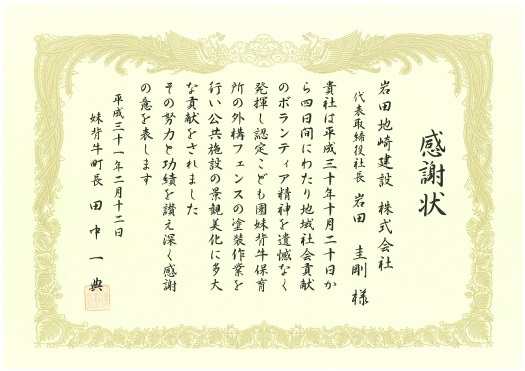 感謝状
岩田地崎建設 株式会社
代表取締役社長 岩田 圭剛 様
貴社は平成三十年十月二十日か
ら四日間にわたり地域社会貢献
のボランティア精神を遺憾なく
発揮し認定こども園妹背牛保育
所の外構フェンスの塗装作業を
行い公共施設の景観美化に多大
な貢献をされました
その努力と功績を讃え深く感謝
の意を表します
平成三十一年二月十二日
妹背牛町長 田中 一典